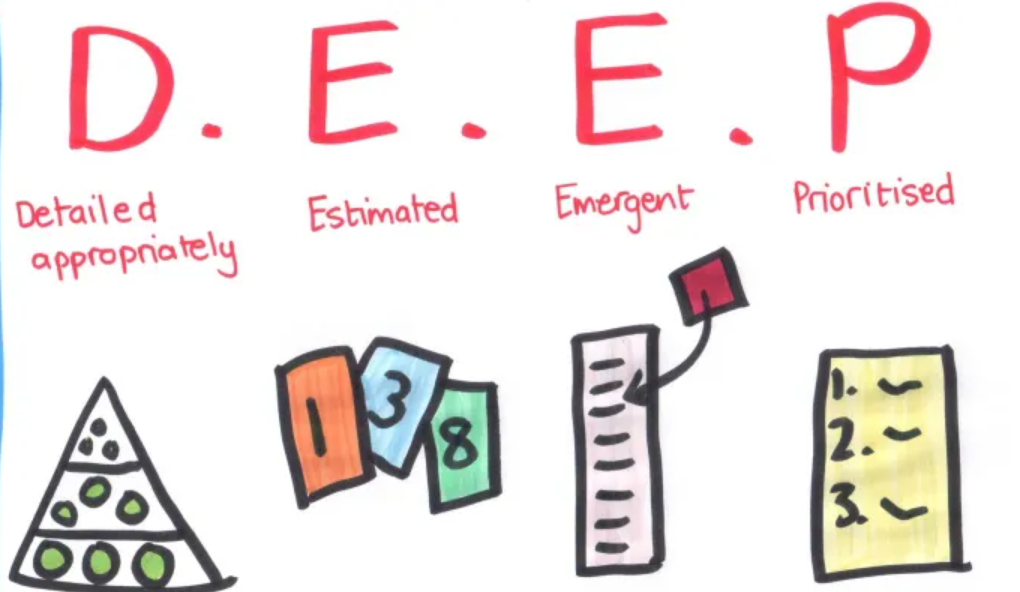 D. E. E. P
Detailed
appropriately
Estimated
Emergent
Prioritised
1 3 8
1.
2.
3.